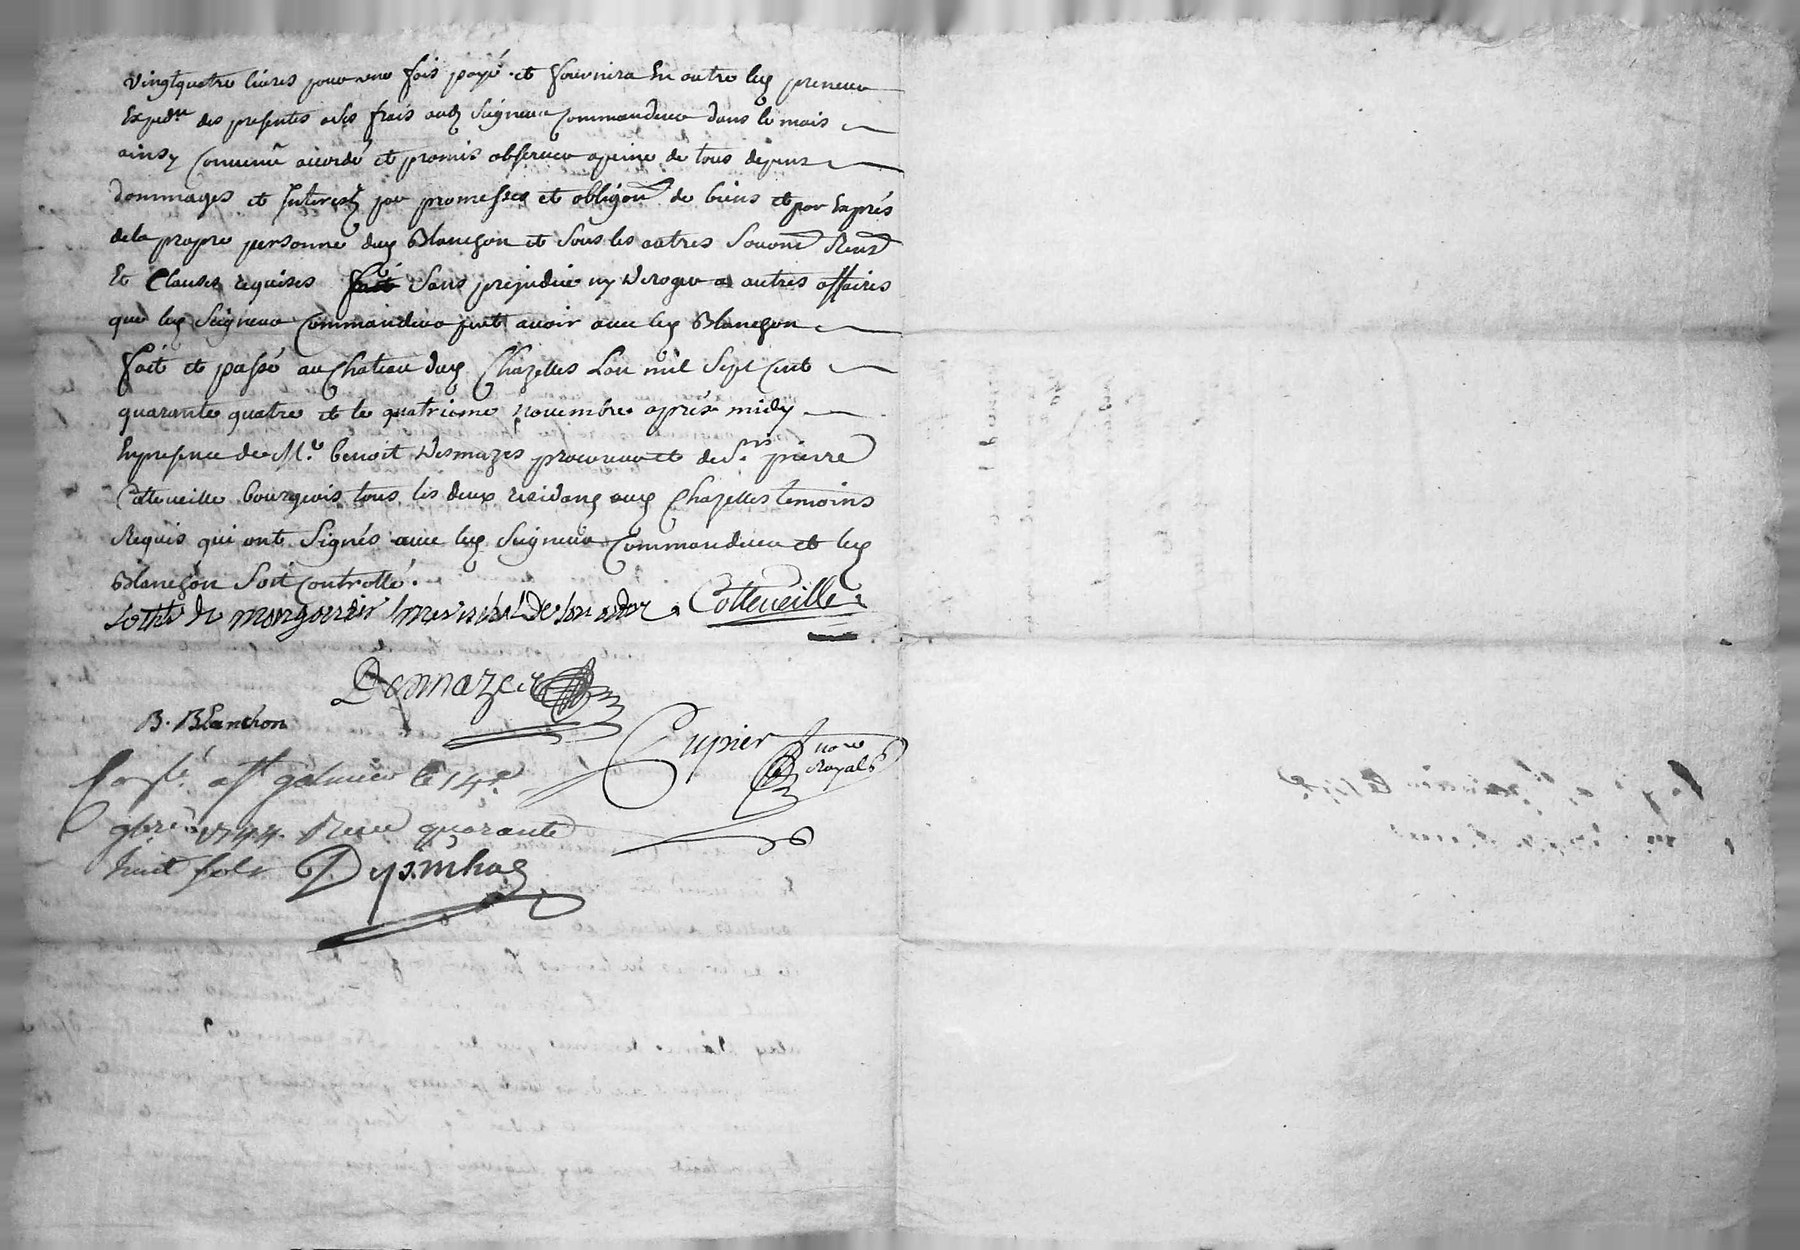 vingtquatre livres pour une fois payé et fournira En outre led preneur
Expedn des presentes a ses frais aud Seigneur Commandeur dans le mois
ainsy Convenu acordé et promis observer apeine de tous depens
dommages et Interest par promesses et obligons de biens et par Exprés
de la propre personne dud Blanchon et sous les autres
Et Clauses requises fait sans prejudice ny deroger a autres affaires
que led Seigneur Commandeur peut avoir avec led Blanchon
fait et passé au Chateau dud Chazelles Lan mil sept cent
quarante quatre et le quatrieme novembre aprés midy
En presence de Mr benoit desmazes procureur et de Sr pierre
Cotteveille bourgeois tous les deux residans aud Chazelles temoins
Requis qui ont Signés avec led Seigneur Commandeur et led
Blanchon soit controllé.
Cotteveille
Desmazes
B. Blanchon
Cupier nore Royal
Conslé a St galmier le 14e
9bre 1744. Receu quarante
huit sols